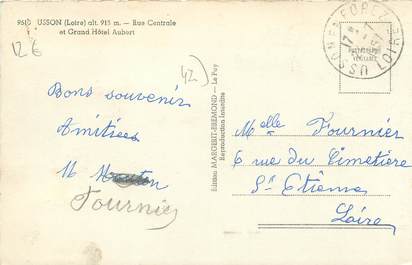 9510 USSON (Loire) alt. 915 m. — Rue Centrale
et Grand Hôtel Aubert
12 €
42
Bons souvenir
Amitiées
M
Tournier
Edition MARGERIT-BREMOND — Le Puy
Reproduction Interdite
USSON EN FOREZ
LOIRE
Melle Fournier
6 rue du Cimetière
St Etienne
Loire